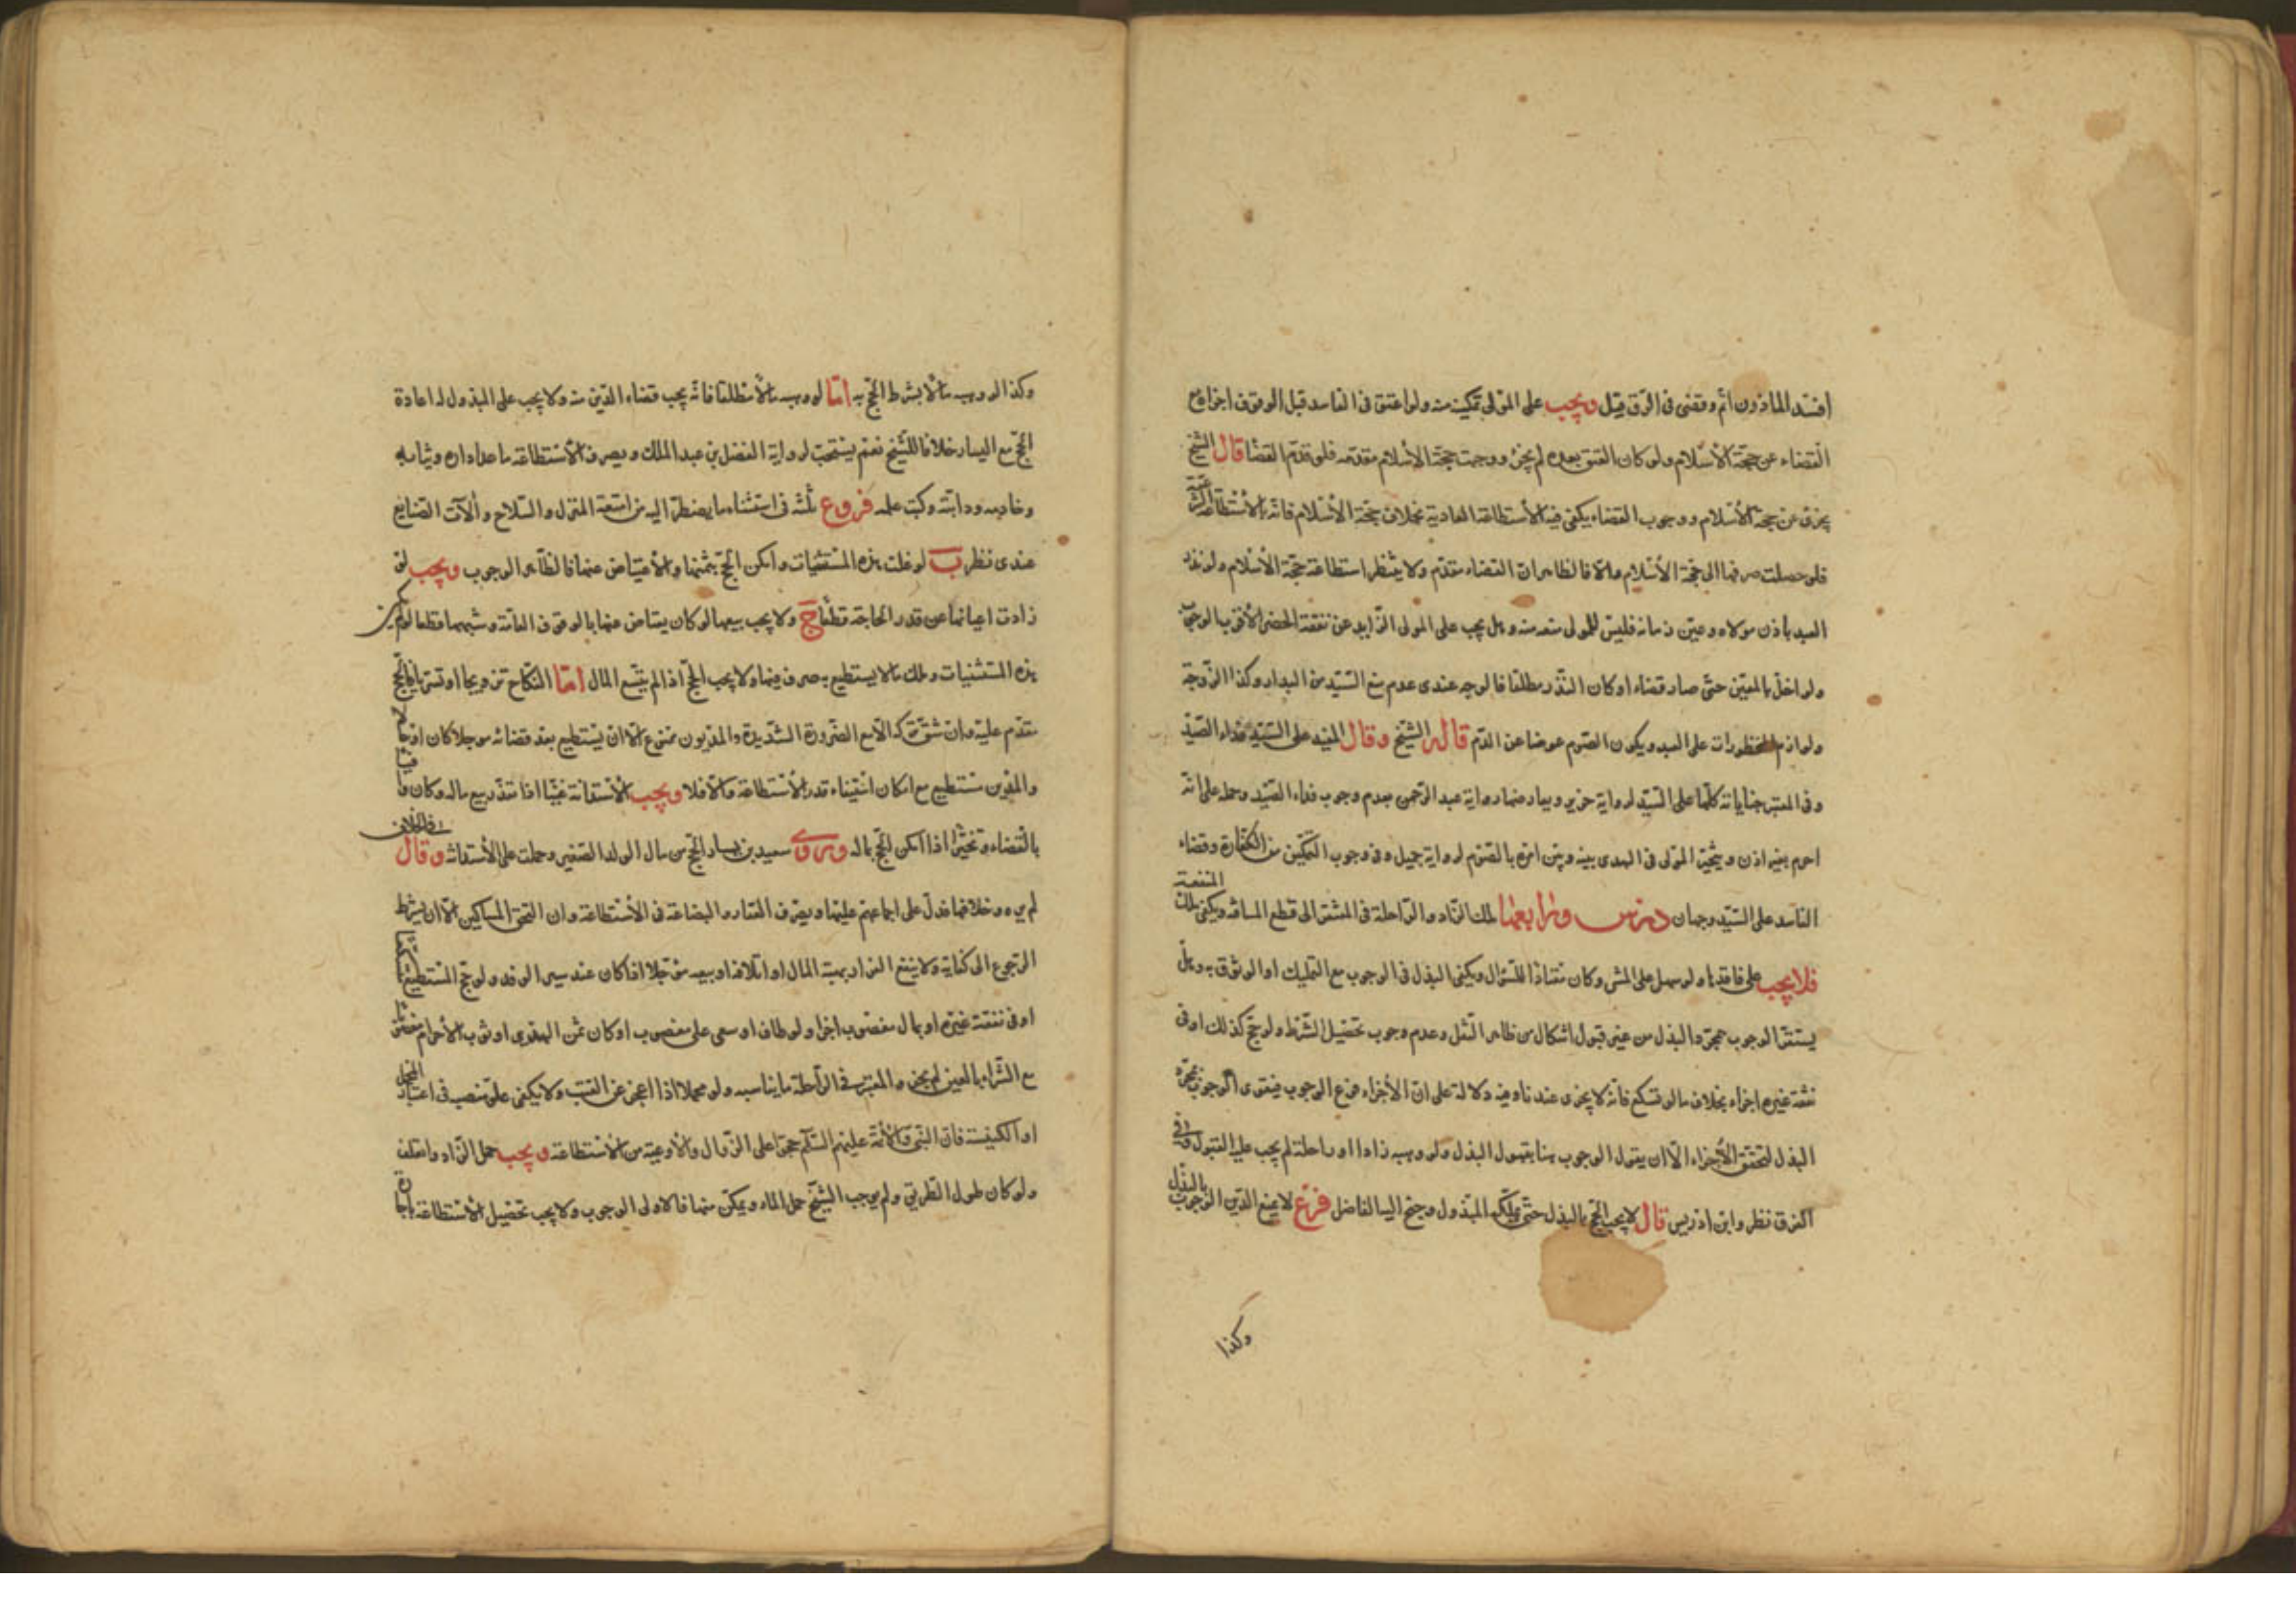 افسد الماذون اتم وقضى فى الرق قيل ويجب على المولى تمكينه منه ولو اعتق فى الفاسد قبل الوقوف اجزا مع
القضاء عن حجة الاسلام ولو كان العتق بعده لم يجز ووجبت حجة الاسلام مقدمه فلو قدم القضا قال الشيخ
يجزى عن حجة الاسلام ووجوب القضاء يكفى فيه الاستطاعة العادية بخلاف حجة الاسلام فانه بالاستطاعة الشرعية
فلو حصلت صرفها الى حجة الاسلام والا فالظاهر ان القضاء مقدم ولا ينتظر استطاعة حجة الاسلام ولو نذر
العبد باذن مولاه وعين زمانه فليس للمولى منعه منه وهل يجب على المولى الزايد عن نفقة الحضر الاقرب الوجوب
ولو اخل بالمعين حتى صار قضاء او كان النذر مطلقا فالوجه عندى عدم منع السيد من البدار وكذا الزوجة
ولوازم المحظورات على العبد ويكون الصوم عوضا عن الدم قاله الشيخ وقال المفيد على السيد فداء الصيد
وفى المعتبر جناياته كلها على السيد لرواية حريز ويعارضها رواية عبد الرحمن بعدم وجوب فداء الصيد وحمله على انه
احرم بغير اذن ويتخير المولى فى الهدى بينه وبين امره بالصوم لرواية جميل وفى وجوب التمكين من الكفارة وقضاء
الفاسد على السيد وجهان درس ورابعها ملك الزاد والراحلة فى المفتقر الى قطع المسافة ويكفى ملك المنفعة
فلا يجب على فاقدها ولو سهل على المشى وكان معتادا للسؤال ويكفى البذل فى الوجوب مع التمليك او الوثوق به وهل
يستقر الوجوب بمجرد البذل من غير قبول اشكال من ظاهر النقل وعدم وجوب تحصيل الشرط ولو حج كذلك او فى
نفقة غيره اجزاء بخلاف ما لو تسكع فانه لا يجزى عندنا وفيه دلالة على ان الاجزاء فرع الوجوب فيقوى الوجوب بمجرد
البذل لتحقق الاجزاء الا ان يقول الوجوب هنا بقبول البذل ولو وهبه زادا او راحلة لم يجب عليه القبول وفى
الفرق نظر وابن ادريس قال لا يجب الحج بالبذل حتى يملكه المبذول وجنح اليه الفاضل فرع لا يمنع الدين الوجوب بالبذل
وكذا
وكذا لو وهبه مالا بشرط الحج به اما لو وهبه مالا مطلقا فانه يجب قضاء الدين منه ولا يجب على المبذول له اعادة
الحج مع اليسار خلافا للشيخ نعم يستحب لرواية الفضل بن عبد الملك ويصرف فى الاستطاعة ما عدا داره وثيابه
وخادمه ودابته وكتب علمه فروع ثلثه فى استثناء ما يضطر اليه من امتعة المنزل والسلاح وآلات الصنايع
عندى نظر ب لو غلت هذه المستثنيات وامكن الحج بثمنها والاعتياض عنها فالظاهر الوجوب ويجب لو
زادت اعيانها عن قدر الحاجة قطعا ج ولا يجب بيعها لو كان يعتاض عنها بالوقوف العامة وشبهها قطعا لو لم يكن
هذه المستثنيات وملك مالا يستطيع به صرف فيها ولا يجب الحج اذا لم يتسع المال اما النكاح تزويجا او تسريا فالحج
مقدم عليه وان شق تركه الا مع الضرورة الشديدة والمديون ممنوع الا ان يستطيع بعد قضائه مؤجلا كان او حالا
والمدين مستطيع مع امكان استيفاء قدر الاستطاعة والا فلا ويجب الاستدانة عينا اذا تعذر بيع ماله وكان وافيا
بالقضاء وتخيرا اذا امكن الحج بماله وروى سعيد بن يسار الحج من مال الولد الصغير وحملت على الاستدانة وقال فى الخلاف
لم يروه وخلافها فدل على اجماعهم عليها ويصرف العقار والبضاعة فى الاستطاعة وان التحق بالمساكين الا ان يشترط
الرجوع الى كفاية ولا ينفع الفرار بهبة المال او اتلافه او بيعه مؤجلا اذا كان عند سير الوفد ولو حج المستطيع متسكعا
او فى نفقة غيره او بمال مغصوب اجزا ولو طاف او سعى على مغصوب او كان ثمن الهدى او ثوب الاحرام مغصوبا
مع الشراء بالعين لم يجز والمعتبر فى الراحلة ما يناسبه ولو محملا اذا اعجز عن القتب ولا يكفى علو منصبه فى اعتبار المحمل
او الكنيسة فان النبى والائمة عليهم السلم حجوا على الزوامل والاوعية من الاستطاعة ويجب حمل الزاد والعلف
ولو كان طول الطريق ولم يوجب الشيخ حمل الماء ويمكن منها فالاولى الوجوب ولا يجب تحصيل الاستطاعة باجارة